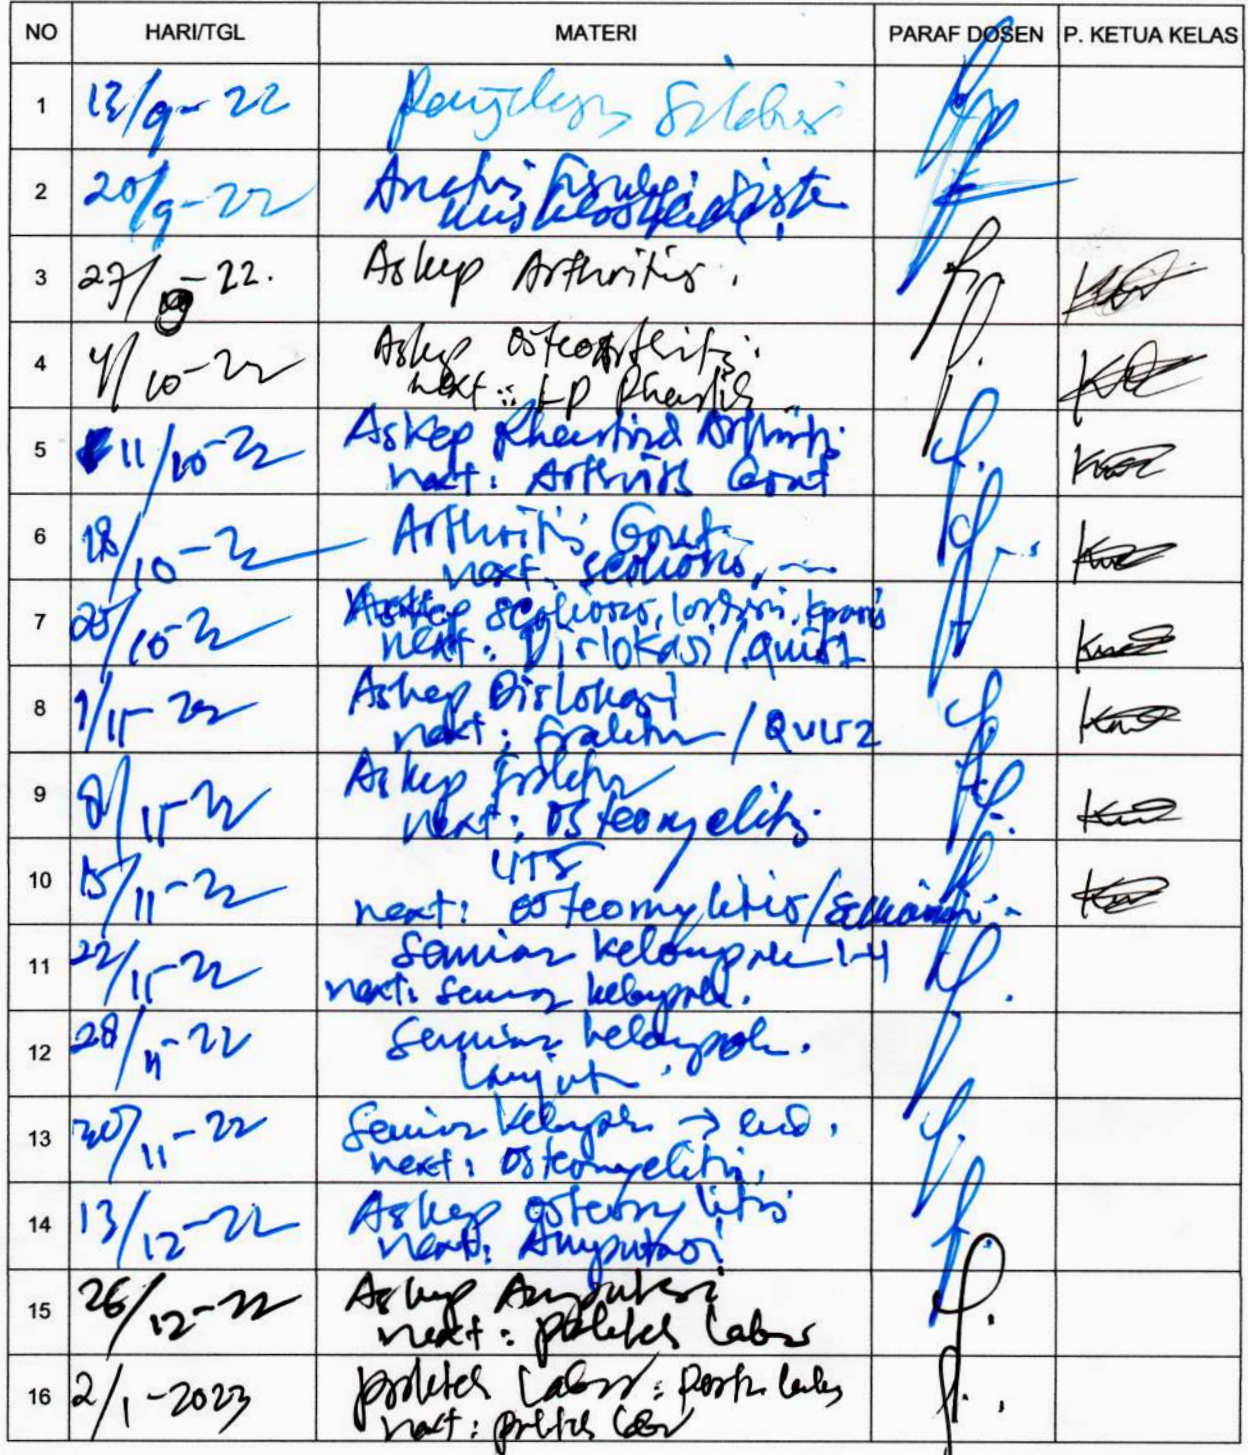 NO HARI/TGL MATERI PARAF DOSEN P. KETUA KELAS
1 13/9-22
2 20/9-22
3 27/9-22. Askep Arthritis.
4 4/10-22 Askep Osteoarthritis.
next: LP
5 11/10-22 Askep Rheumatoid Arthritis.
next: Arthritis Gout
6 18/10-22 Arthritis Gout
next: scoliosis,
7 25/10-22 Askep scoliosis, lordosis, kifosis
next: Dislokasi/Quis 1
8 1/11-22 Askep Dislokasi
next: fraktur / Quis 2
9 8/11-22 Askep fraktur
next: Osteomyelitis.
10 15/11-22 UTS
next: osteomylitis/
11 22/11-22 Seminar kelompok 1-4
next: seminar kelompok.
12 28/11-22 Seminar kelompok.
Lanjut.
13 30/11-22 Seminar kelompok → end.
next: Osteomyelitis.
14 13/12-22 Askep osteomylitis
next: Amputasi
15 26/12-22 Askep Amputasi
next: praktek Labor
16 2/1-2023 praktek Labor:
next: praktek Labor